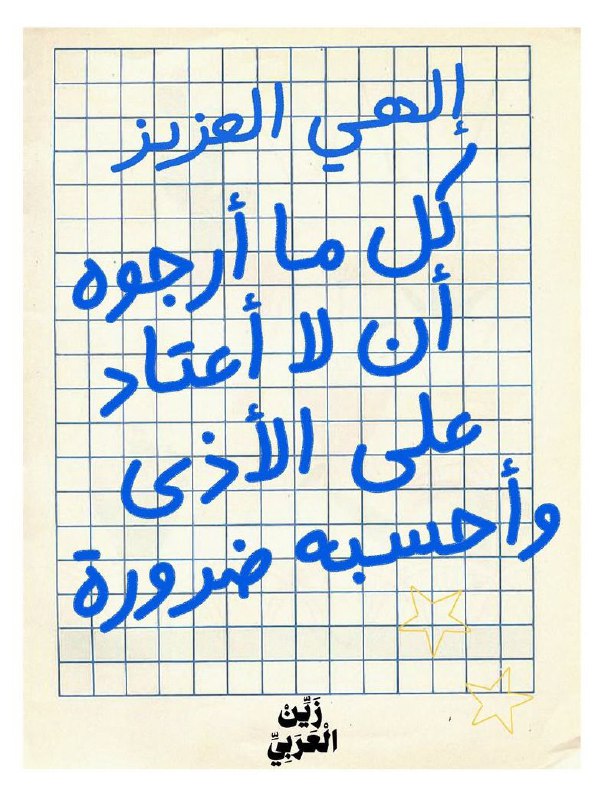 إلهي العزيز
كل ما أرجوه
أن لا أعتاد
على الأذى
وأحسبه ضرورة
زَيِّنْ
الْعَرَبِيِّ